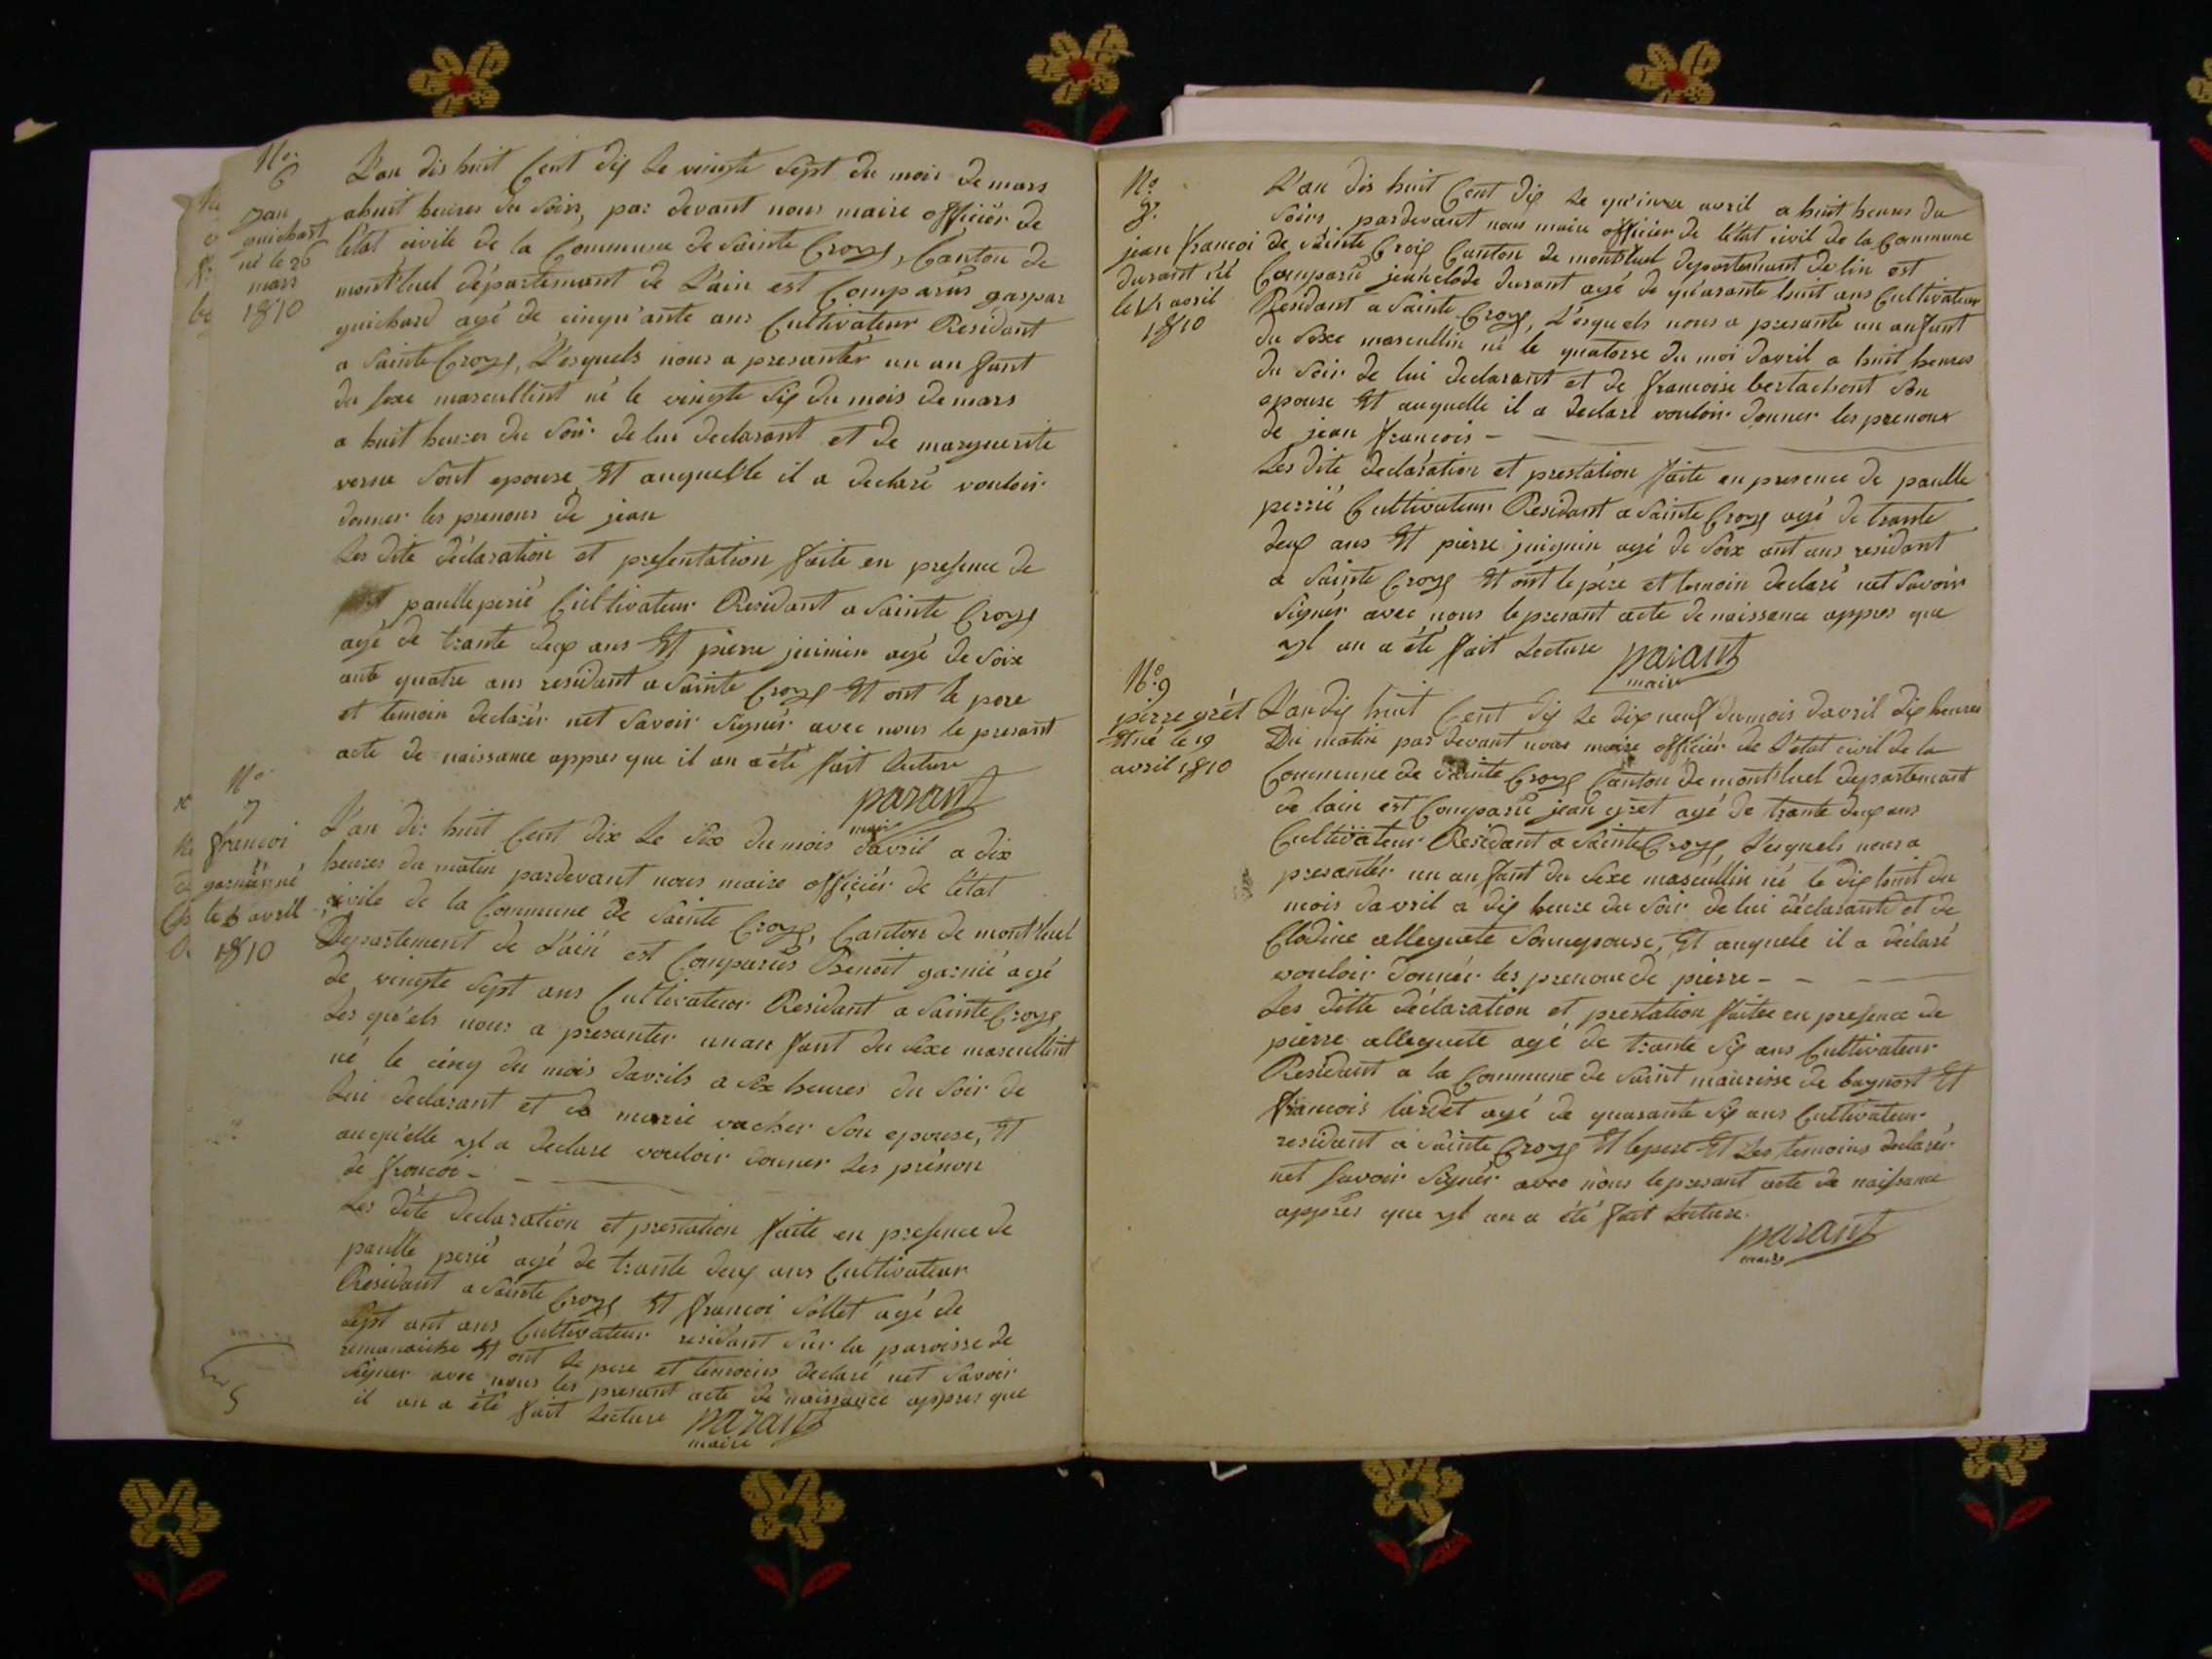 No.
6
Jan
guichart
né le 26
mars
1810
L'an dis huit Cent dix Le vingte Sept du mois de mars
ahuit heures du Soirs, par devant nous maire officiér de
létat civile de la Commune de Sainte Croys, Canton de
mont'luel département de L'ain est Comparus gaspar
guichard agé de cinqu'ante ans Cultivateur Residant
a Sainte Croys, L'esquels nous a presantér un an fant
du sexe mascullint né le vingte Six du mois de mars
a huit heures du Soir de lui declarant et de marguerite
verne Sont epouse Et auquelle il a declaré vouloir
donner les prenons de jean
Les dite déclaration et presentation faite en presence de
paulle perié Cultivateur Residant a Sainte Croys
agé de trante deux ans Et pierre juinin agé de Soix
ante quatre ans residant a Sainte Croys Et ont le pere
et temoin declarér net Savoir Signér avec nous le presant
acte de naissance appres que il an a été fait Lecture
parant
maire
No
7
francoi
garnié né
le 5 avril
1810
L'an dix huit Cent dix Le Six du mois d'avril a dix
heures du matin pardevant nous maire officiér de l'état
civile de la Commune de Sainte Croys, Canton de mont'luel
Departement de L'ain est Comparus Benoit garnié agé
de vingte Sept ans Cultivateur Residant a Sainte Croys
Les qu'els nous a presanter un an fant du Sexe mascullint
né le cinq du mois d'avrils a Six heures du Soir de
Lui declarant et de marie vacher Son epouse, Et
auqu'elle yl a declare vouloir donner Les prénon
de francoi -
Les dite declaration et prestation faite en presence de
paulle perié agé de trante deux ans Cultivateur
Residant a Sainte Croys Et francoi Sollet agé de
Sept ant ans Cultivateur residant Sur la paroisse de
romanaiche Et ont Le pere et temoins declaré net Savoir
Signer avec nous les presant acte de naissance appres que
il an a été fait Lecture
parant
maire
5
No
8.
jean francoi
durant né
le 14 avril
1810
L'an dis huit Cent dix Le qu'inze avril a huit heures du
Soirs pardevant nous maire officier de létat civil de la Commune
de Sainte Croix Canton de mont'luel departemant de lin est
Comparu jean clode durant agé de qu'arante huit ans Cultivateur
Residant a Sainte Croys, L'esquels nous a presanté un anfant
du Sexe mascullin né le quatorse du moi davril a huit heures
du Soir de lui declarant et de francoise bertachont Son
epouse Et auquelle il a declaré vouloir donner les prenons
de jean francois -
Les dite declaration et prestation faite en presence de paulle
perrié Cultivateur Residant a Sainte Croys agé de trante
deux ans Et pierre juignin agé de Soix ant ans residant
a Sainte Croys Et ont le pére et temoin declaré net Savoir
Signér avec nous le presant acte de naissance appres que
yl an a été fait Lecture
parant
maire
No 9
pierre grét
Et né le 19
avril 1810
L'an dix huit Cent dix Le dix neuf du mois d'avril dix heures
Du matin par devant nous maire officiér de L'état civil de la
Commune de Sainte Croys Canton de mont'luel departemant
de lain est Comparu jean grét agé de trante deux ans
Cultivateur Residant a Sainte Croys L'esquels nous a
presantér un an fant du Sexe mascullin né le dix huit du
mois davril a dix heure du Soir de lui déclarant et de
Clodine allegnete Sonnepouse, Et auquele il a déclaré
vouloir donnér les prenon de pierre - -
Les ditte déclaration et prestation faitee en presence de
pierre allegnete agé de trante Six ans Cultivateur
Residant a la Commune de Saint maurisse de baynost Et
francois lardet agé de quarante Six ans Cultivateur
residant a Sainte Croys Et le pere Et Les temoins declarér
net Savoir Signér avec nous le presant acte de naissance
apprés que yl an a été fait Lecture.
parant
maire